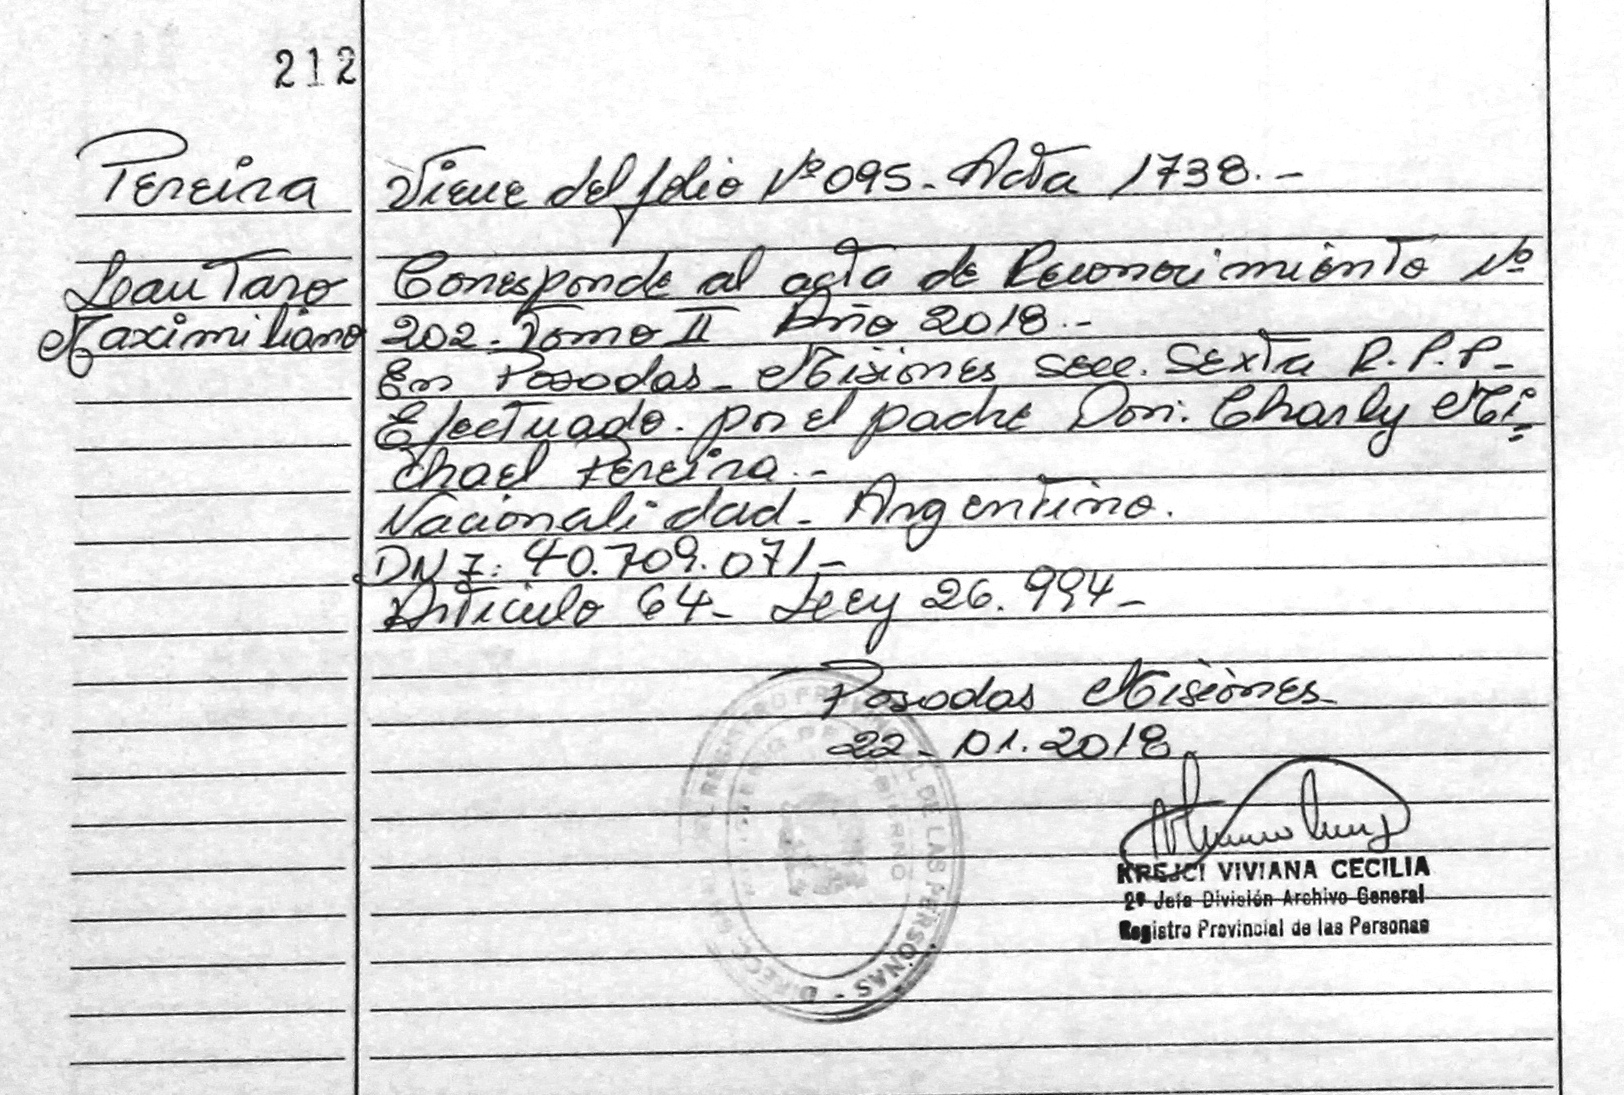 212
Pereira
Viene del folio Nº 095. Acta 1738.-
Leautaro
Maximiliano
Coresponde al acta de Reconocimiento Nº
202. Tomo II Año 2018.-
En Posadas - Misiones secc. Sexta R.P.P-
Efectuado. por el padre Don. Charly Mi=
chael Pereira.-
Nacionalidad - Argentino.
DNI: 40.709.071-
Articulo 64- Ley 26.994-
Posadas Misiones
22-01.2018
KREJCI VIVIANA CECILIA
2º Jefe División Archivo General
Registro Provincial de las Personas
REGISTRO PROVINCIAL DE LAS PERSONAS - DIRECC. GRAL.
MINISTERIO DE GOBIERNO